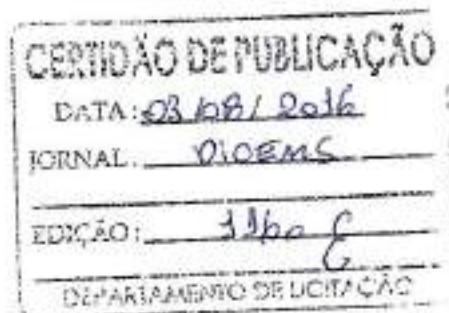 CERTIDÃO DE PUBLICAÇÃO
DATA: 03/08/2016
JORNAL: DIOEMS
EDIÇÃO:
DEPARTAMENTO DE LICITAÇÃO